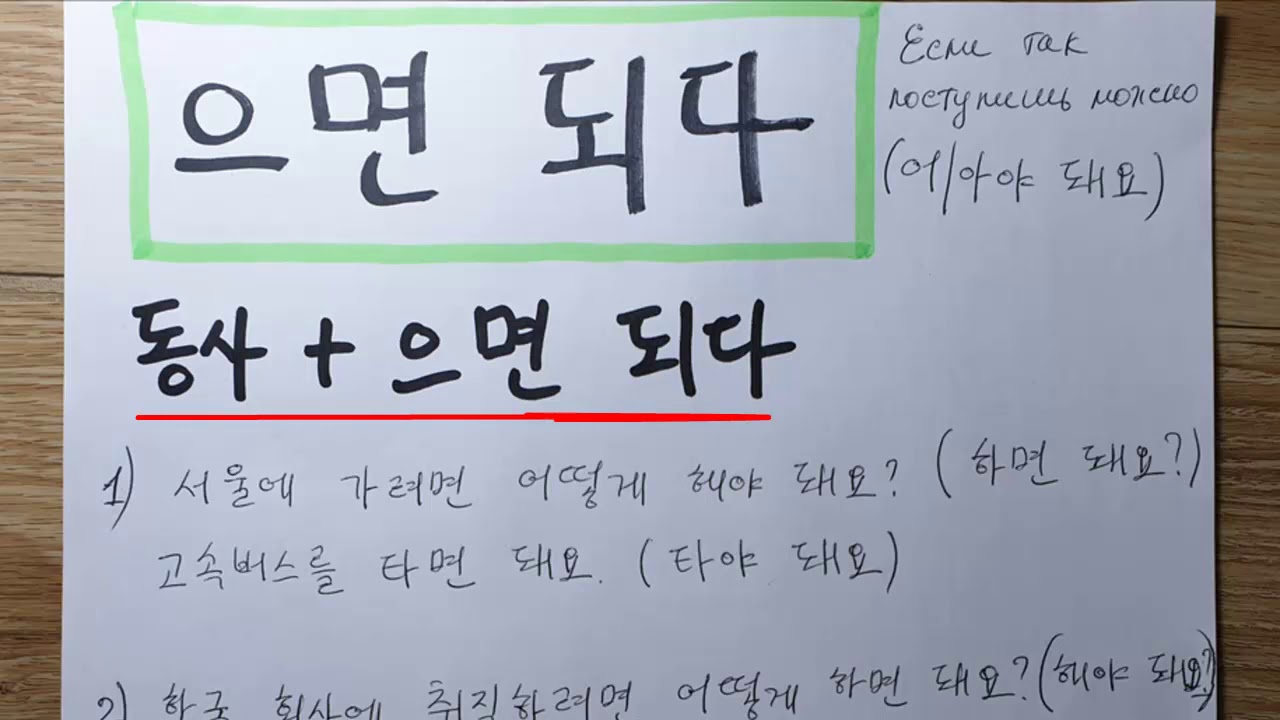 으면 되다
Если так
поступишь можно
(어/아야 돼요)
동사 + 으면 되다
1) 서울에 가려면 어떻게 해야 돼요? (하면 돼요?)
고속버스를 타면 돼요. (타야 돼요)
2) 한국 회사에 취직하려면 어떻게 하면 돼요? (해야 돼요?)